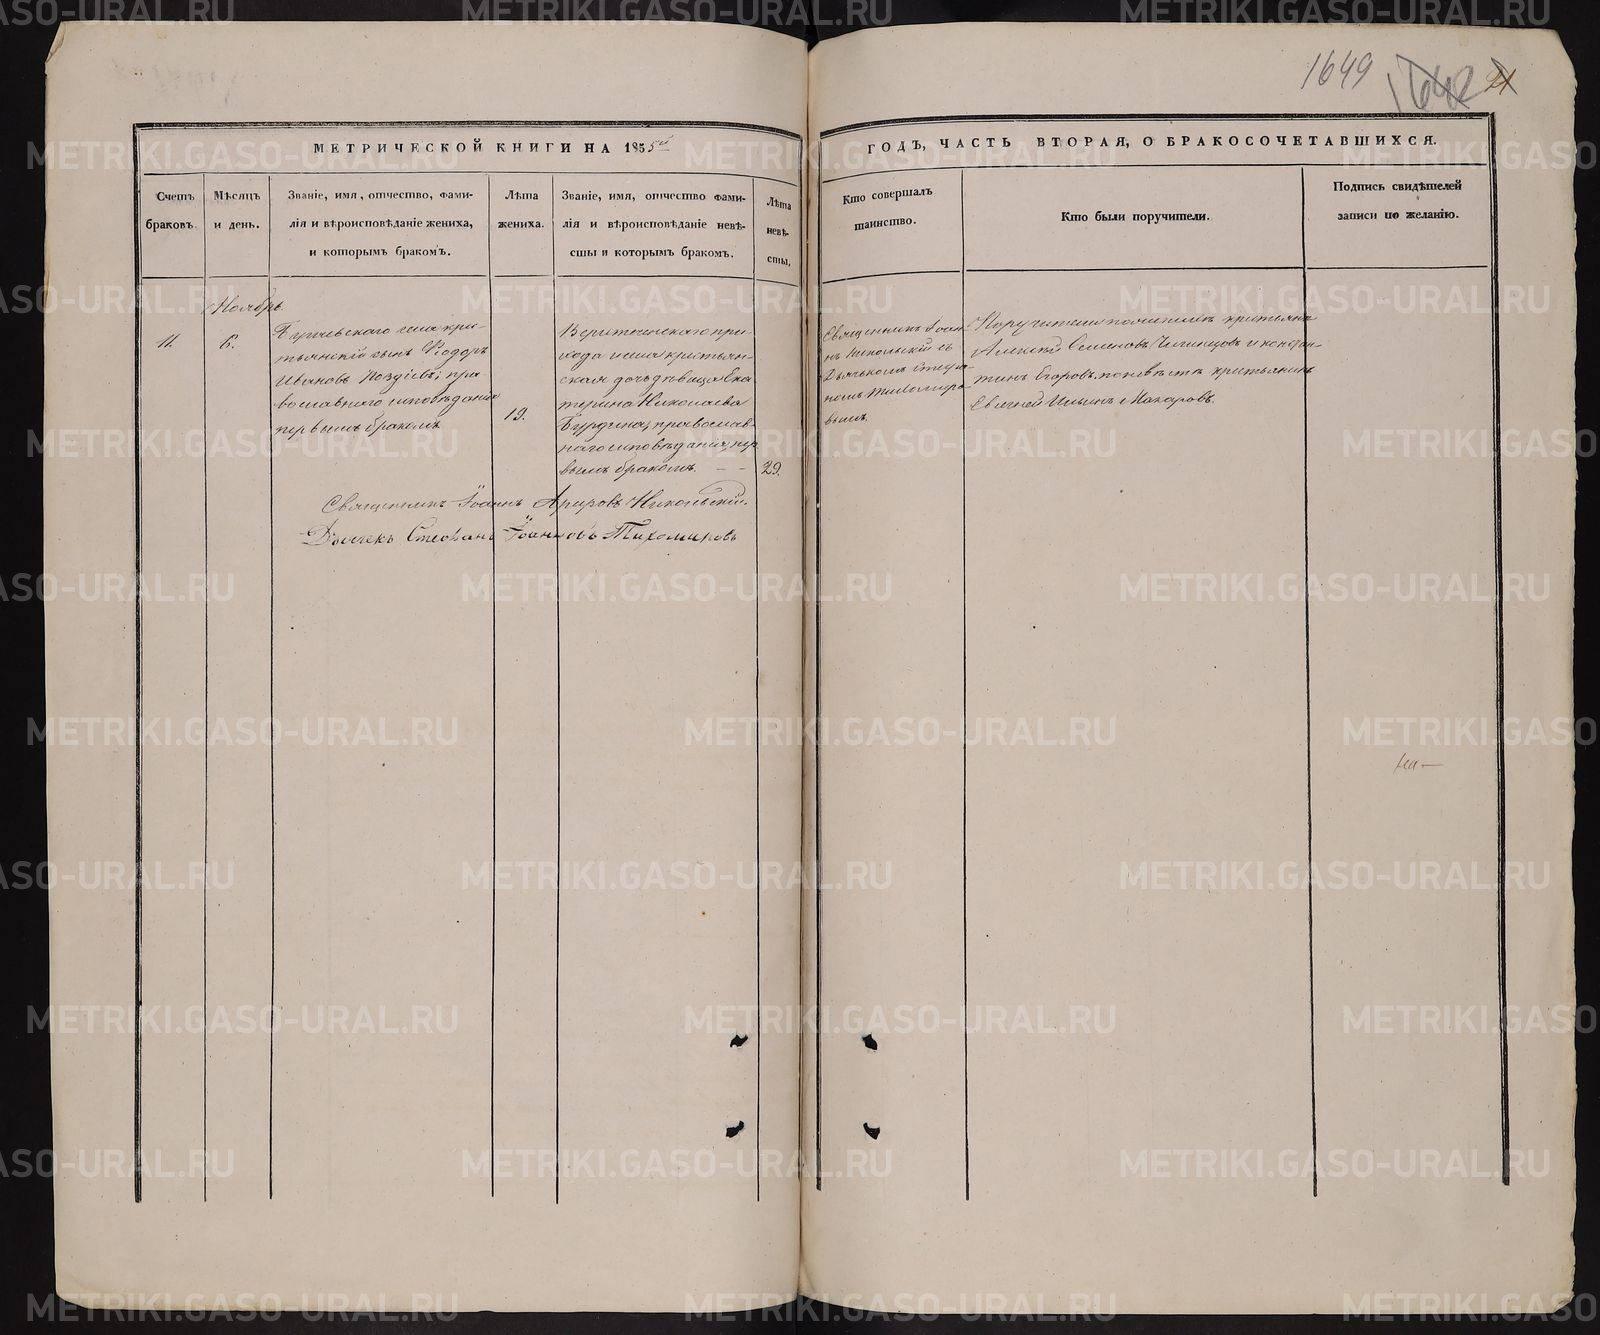 1649 1642 21
МЕТРИЧЕСКОЙ КНИГИ НА 1855й
ГОДЪ, ЧАСТЬ ВТОРАЯ, О БРАКОСОЧЕТАВШИХСЯ.
Счетъ
браковъ.
Мѣсяцъ
и день.
Званіе, имя, отчество, фами-
лія и вѣроисповѣданіе жениха,
и которымъ бракомъ.
Лѣта
жениха.
Званіе, имя, отчество фами-
лія и вѣроисповѣданіе невѣ-
сты и которымъ бракомъ.
Лѣта
невѣ-
сты.
Кто совершалъ
таинство.
Кто были поручители.
Подпись свидѣтелей
записи по желанію.
Ноябрь
11.
6.
села кре-
стьянскій сынъ Ѳедоръ
Ивановъ Поздѣевъ; пра
вославнаго исповѣданія
первымъ бракомъ
19.
при-
хода села крестьян-
ская дочь дѣвица Ека
терина Николаева
Бурдина, православ-
наго исповѣданія, пер
вымъ бракомъ. — —
29.
Священникъ Іоан
нъ Никольскій съ
Дьячкомъ Стефа-
номъ Тихомиро
вымъ.
Поручители по женихѣ крестьяне
Алексѣй Семеновъ и Констан-
тинъ Егоровъ, по невѣстѣ крестьянинъ
Евгеній Ильинъ Макаровъ.
Священникъ Іоаннъ Никольскій.
Дьячекъ Стефанъ Іоанновъ Тихомировъ
METRIKI.GASO-URAL.RU